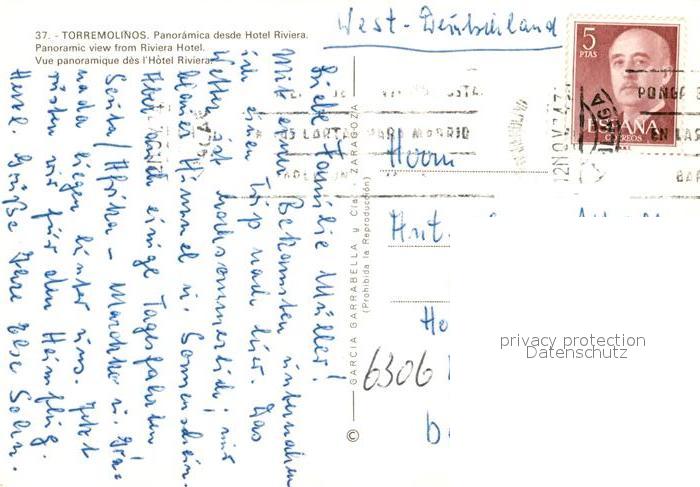 37. - TORREMOLINOS. Panorámica desde Hotel Riviera.
Panoramic view from Riviera Hotel.
Vue panoramique dès l'Hôtel Riviera.
West-Deutschland
5
PTAS
ESPAÑA
CORREOS
PONGA
EN LAS
CARTAS PARA MADRID
12 NOV
MALAGA
Liebe Familie Müller!
Mit einem Bekannten unternahm
ich einen Trip nach hier. Das
Wetter ist hochsommerlich; nur
blauer Himmel u. Sonnenschein.
Aber auch einige Tagesfahrten
Ceuta/Afrika - Marokko u. Gra-
nada liegen hinter uns. Jetzt
rüsten wir für den Heimflug.
Herzl. Grüße Ihre Else
GARCIA GARRABELLA y Cía. - ZARAGOZA
(Prohibida la Reproducción)
©
Herrn
6306
privacy protection
Datenschutz